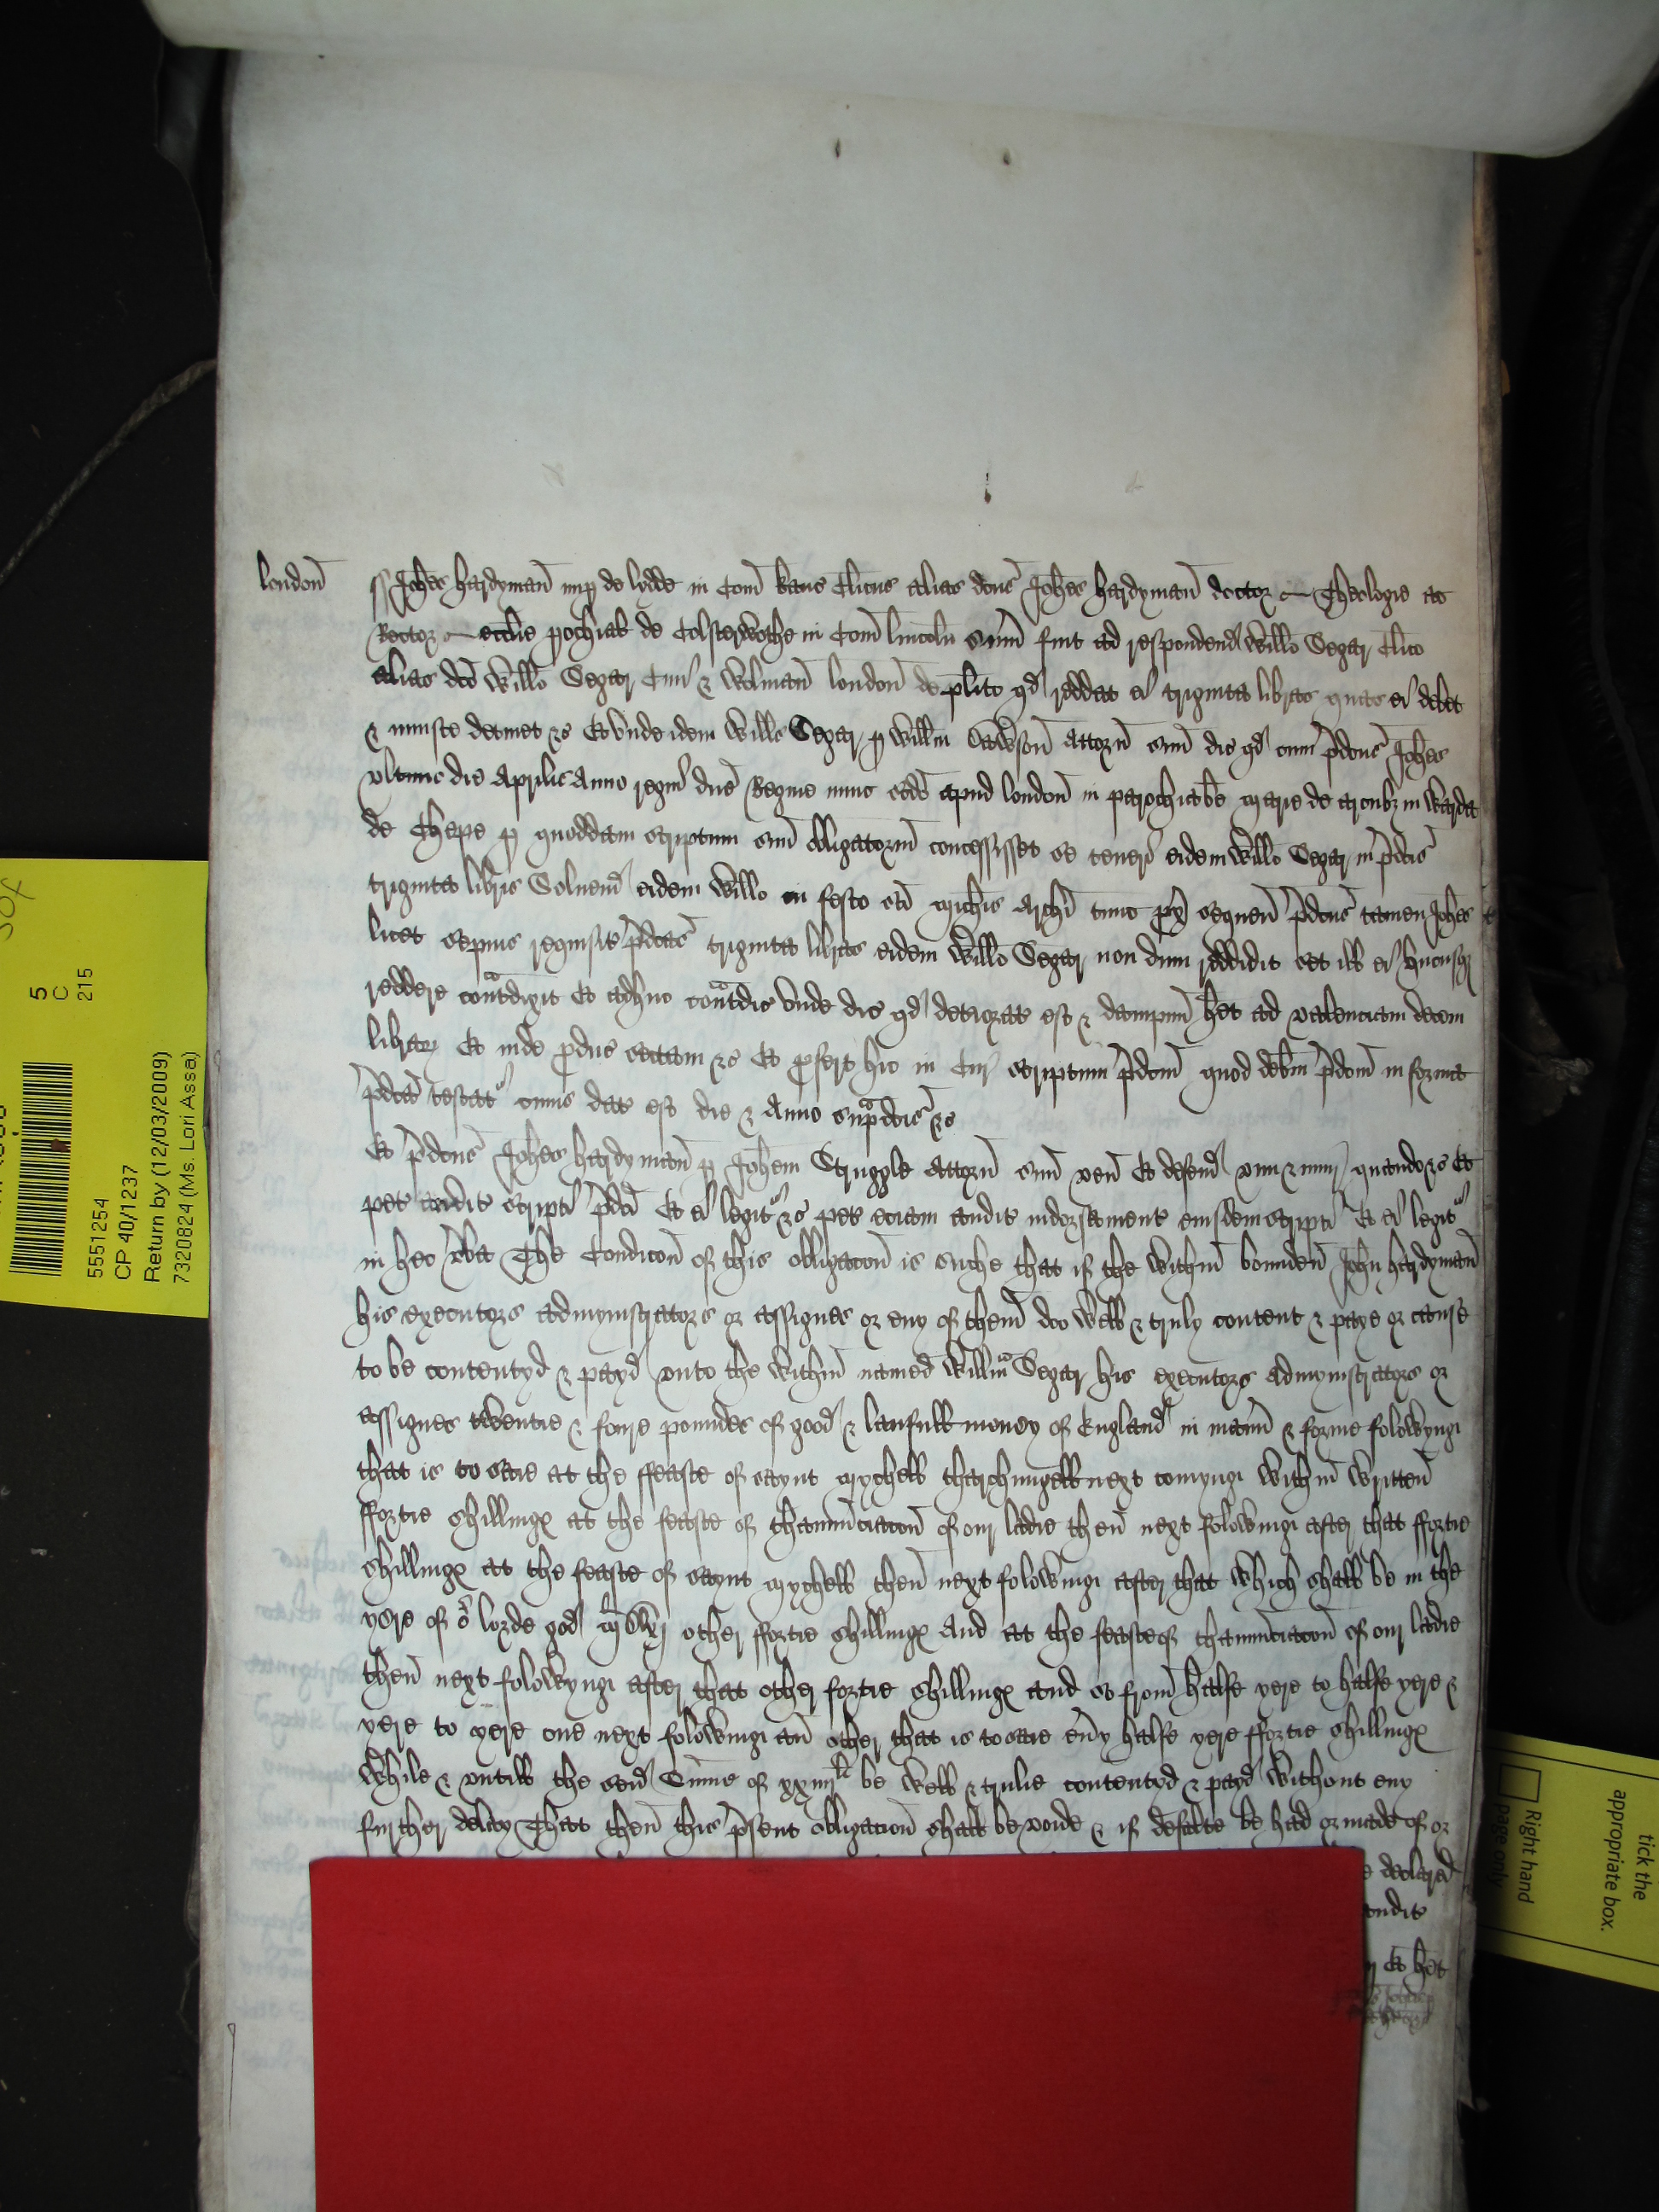 london̄ ss Joh̄es hardyman̄ nup de lydde in Com̄ kanc Cl̄icus alias dc̄us Joh̄es hardyman̄ doctor Theologie ac
Rector eccl̄ie p̲ochial̄ de Colsterwothe in Com̄ lincoln̄ sum̄ fuit ad respondend̄ Will̄o Segar Cl̄ico
alias dc̄o Will̄o Segar Civi & Wolman̄ london̄ de pl̄ito qd̄ reddat ei triginta libras quas ei debet
& iniuste detinet &c Et unde idem Will̄s Segar p̲ Will̄m attorn̄ suū dic̄ qd̄ cum p̄dc̄us Joh̄es
ultimo die Aprilis Anno regni dn̄e Regine nunc scd̄o apud london̄ in parochia b̄e Marie de arcubȝ in Warda
de Chepe p̲ quoddam scriptum suū obligatoriū concessisset se teneri eidem Will̄o Segar in p̄dc̄is
triginta libris Solvend̄ eidem Will̄o in festo sc̄i Mich̄is Archi tunc px̄ sequen̄ p̄dc̄us tamen Joh̄es
licet sepius requisit̄ p̄dc̄as triginta libras eidem Will̄o Segar non dum reddidit set ill̄ ei hucusqȝ
reddere cont̄dixit Et adhuc cont̄dic̄ unde dic̄ qd̄ deteriorat̄ est & dampnū h̄et ad valenciam decem
librar̄ Et inde p̲duc̄ sectam &c Et p̲fert hic in Cur̄ scriptum p̄dc̄m̄ quod deb̄m p̄dc̄m̄ in forma
p̄dc̄a testat̄ cuius dat̄ est die & Anno sup̄dc̄is &c
Et p̄dc̄us Joh̄es hardyman̄ p̲ Joh̄em Struggle Attorn̄ suū ven̄ Et defend̄ vim & iniur̄ quando &c Et
pet̄ audit̄ scripti p̄dc̄i Et ei legit̄ &c pet̄ eciam audit̄ indorsament̄ eiusdem scripti Et ei legit̄
in hec v̄ba The Condic̄on̄ of this obligac̄on̄ is suche that if the within̄ bounden̄ John hardyman̄
his executors admynistrators or assignes or eny of them̄ doo well & truly content & paye or cause
to be contentyd & payd unto the within̄ named Will̄m Segar his executors admynistrators or
assignes twentie & foure poundes of good & laufull money of England in man̄ & forme folowyng
that is to saie at the ffeaste of saynt Mychell tharchungell next comyng within̄ written̄
ffortie shillingꝭ at the feaste of thannunciac̄on̄ of our ladie then̄ next folowing after that ffortie
shillingꝭ at the feaste of saynt Mychell then̄ next folowing after that which shall be in the
yere of oʳ lorde god other ffortie shillingꝭ And at the feaste of thannunciac̄on̄ of our ladie
then̄ next folowyng after that other fortie shillingꝭ and so from̄ halfe yere to halfe yere &
yere to yere one next folowing an̄ other that is to saie ev̄y halfe yere ffortie shillingꝭ
While & untill the seid Sum̄e of xxiiijˡⁱ be well & trulie contentyd & payd without eny
further delay That then̄ this p̄sent obligac̄on̄ shall be voide & if defalte be had or made of or
declared
audit̄
Et h̄et
5
C
215
5551254
CP 40/1237
Return by (12/03/2009)
7320824 (Ms. Lori Assa)
tick the
appropriate box.
Right hand
page only